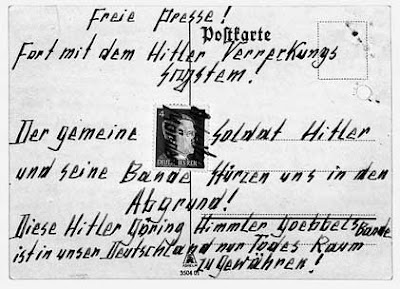 Freie Presse!
Postkarte
Fort mit dem Hitler Verreckungs
system!
Der gemeine Soldat Hitler
und seine Bande Stürzen uns in den
Abgrund!
Diese Hitler Göring Himmler Goebbels Bande
ist in unser Deutschland nur Todes Raum
zu Gewähren!
3504 01